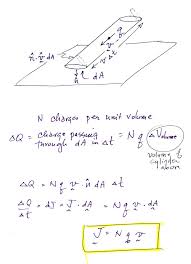 q
v
v Δt
n̂ · v̂ dA
n̂ dA
N charges per unit volume
ΔQ = charge passing through dA in Δt = N q (Δ Volume)
volume of cylinder above
ΔQ = N q v · n̂ dA Δt
ΔQ/Δt = dJ = J · dA = N q v · dA
J = N q v